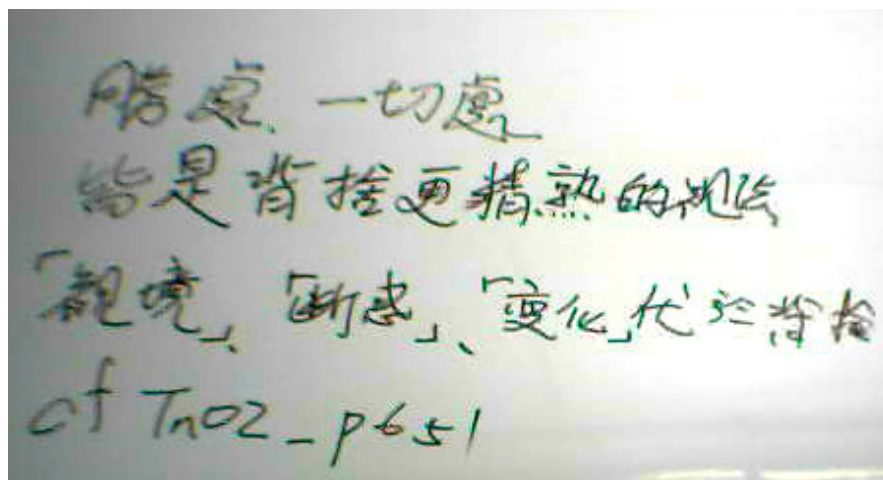 勝處、一切處
皆是背捨更精熟的観法
「観境」、「断惑」、「変化」優於背捨
cf Tn02_p651